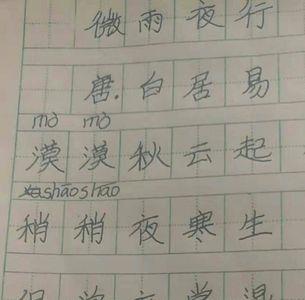 微雨夜行
唐.白居易
mò mò
漠漠秋云起
shāo shāo
稍稍夜寒生